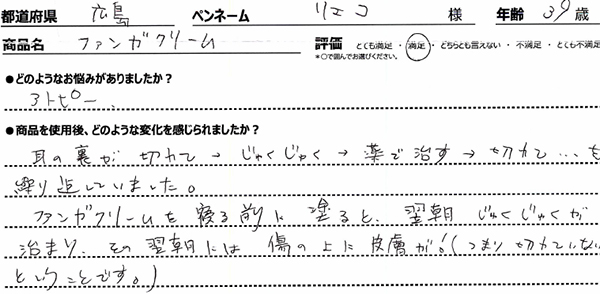 都道府県 広島 ペンネーム リエコ 様 年齢 39 歳
商品名 ファンガクリーム 評価 とても満足・満足・どちらとも言えない・不満足・とても不満足
*○で囲んでお選びください。
●どのようなお悩みがありましたか？
アトピー、
●商品を使用後、どのような変化を感じられましたか？
耳の裏が 切れて→じゅくじゅく→薬で治す→切れて…も
繰り返していました。
ファンガクリームを寝る前に塗ると、翌朝じゅくじゅくが
治まり、その翌朝には傷の上に皮膚が！（つまり切れていない
ということです。）